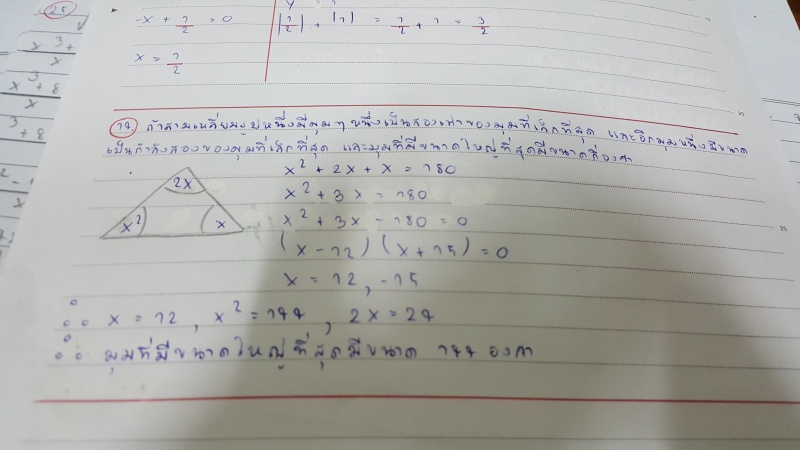 25
x³+
x
x³+8
x
3
+8
-x + 1/2 = 0
x = 1/2
|1/2| + |1| = 1/2 + 1 = 3/2
14. ถ้าสามเหลี่ยมรูปหนึ่งมีมุมๆหนึ่งเป็นสองเท่าของมุมที่เล็กที่สุด และอีกมุมหนึ่งมีขนาด
เป็นกำลังสองของมุมที่เล็กที่สุด และมุมที่มีขนาดใหญ่ที่สุดมีขนาดกี่องศา
2x
x²
x
x² + 2x + x = 180
x² + 3x = 180
x² + 3x - 180 = 0
(x - 12)(x + 15) = 0
x = 12, -15
∴ x = 12, x² = 144, 2x = 24
∴ มุมที่มีขนาดใหญ่ที่สุดมีขนาด 144 องศา